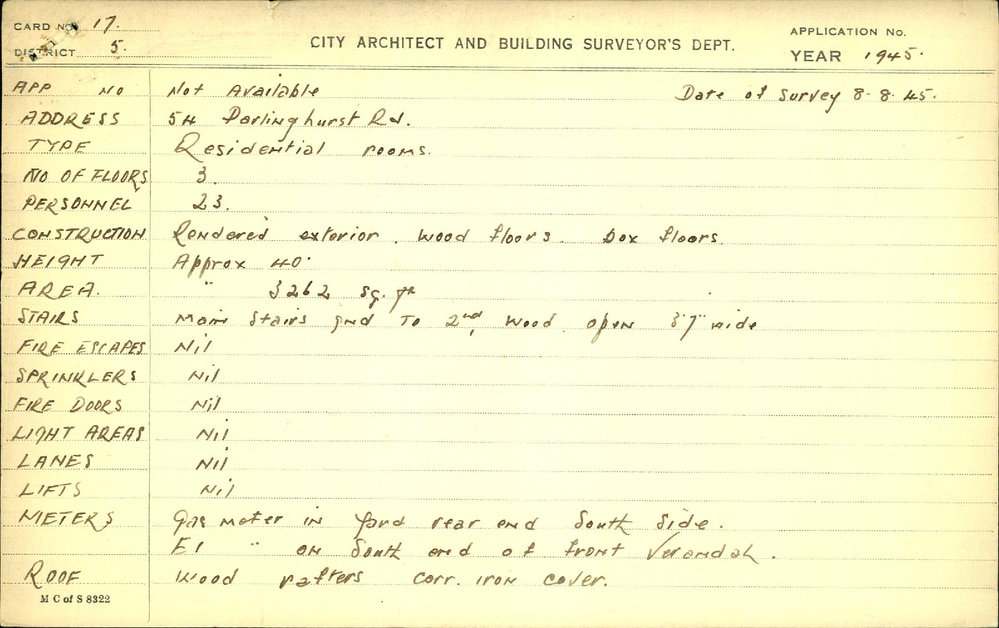 CARD No 17.
DISTRICT 5.
CITY ARCHITECT AND BUILDING SURVEYOR'S DEPT.
APPLICATION No.
YEAR 1945.
APP NO Not Available Date of Survey 8-8-45.
ADDRESS 54 Darlinghurst Rd.
TYPE Residential rooms.
NO OF FLOORS 3.
PERSONNEL 23.
CONSTRUCTION Rendered exterior. Wood floors. Box floors.
HEIGHT Approx 40'
AREA. " 3262 sq. ft
STAIRS Main Stairs gnd To 2nd, Wood open 3'7" wide
FIRE ESCAPES Nil
SPRINKLERS Nil
FIRE DOORS Nil
LIGHT AREAS Nil
LANES Nil
LIFTS Nil
METERS Gas meter in yard rear end South Side.
El " on South end of front Verandah.
ROOF Wood rafters corr. iron cover.
M C of S 8322